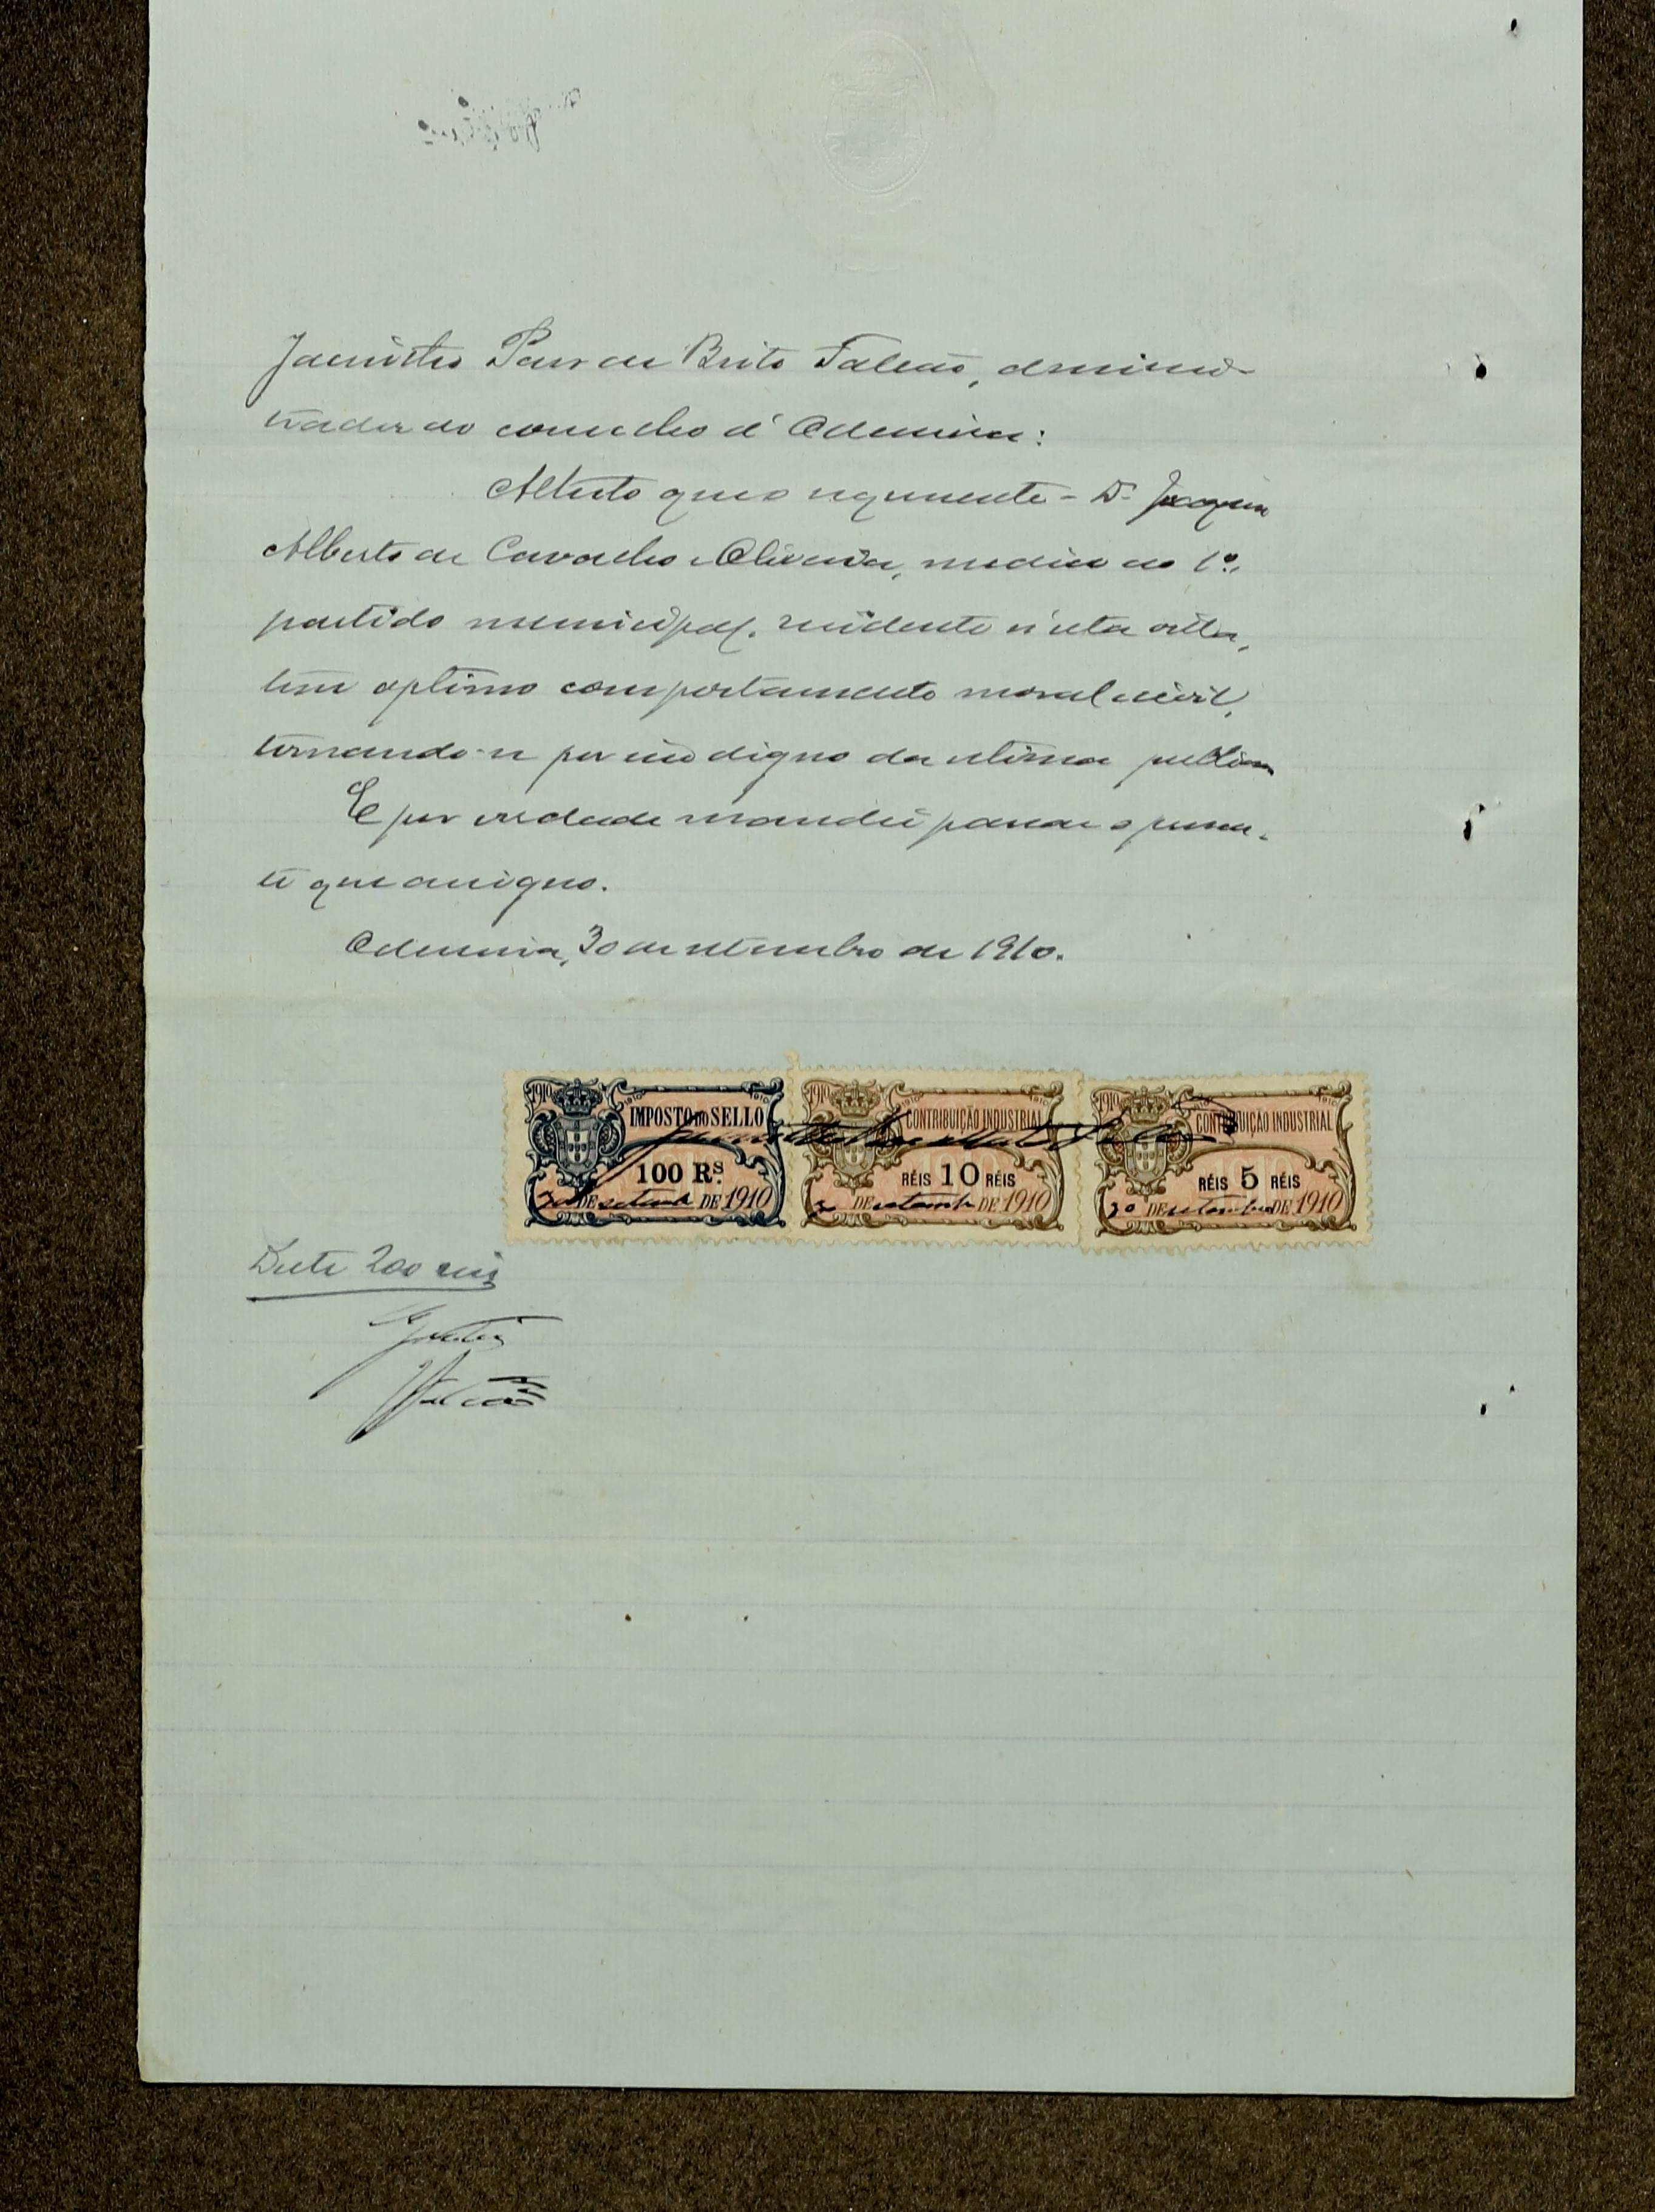 Jacintho Paes de Brito Falcão, adminis-
trador do concelho d'Odemira:
Attesto que o requerente - Dr. Joaquim
Alberto de Carvalho e Oliveira, medico do 1º
partido municipal, residente n'esta villa,
tem optimo comportamento moral e civil,
tornando-se por isso digno da estima publica
E por verdade mandei passar o presen-
te que assigno.
Odemira, 30 de setembro de 1910.
1910 IMPOSTO DO SELLO 100 Rs. 30 DE setembro DE 1910
1910 CONTRIBUIÇÃO INDUSTRIAL RÉIS 10 RÉIS 30 DE setembro DE 1910
1910 CONTRIBUIÇÃO INDUSTRIAL RÉIS 5 RÉIS 30 DE setembro DE 1910
Jacintho Paes de Brito Falcão
Deste 200 reis
Falcão